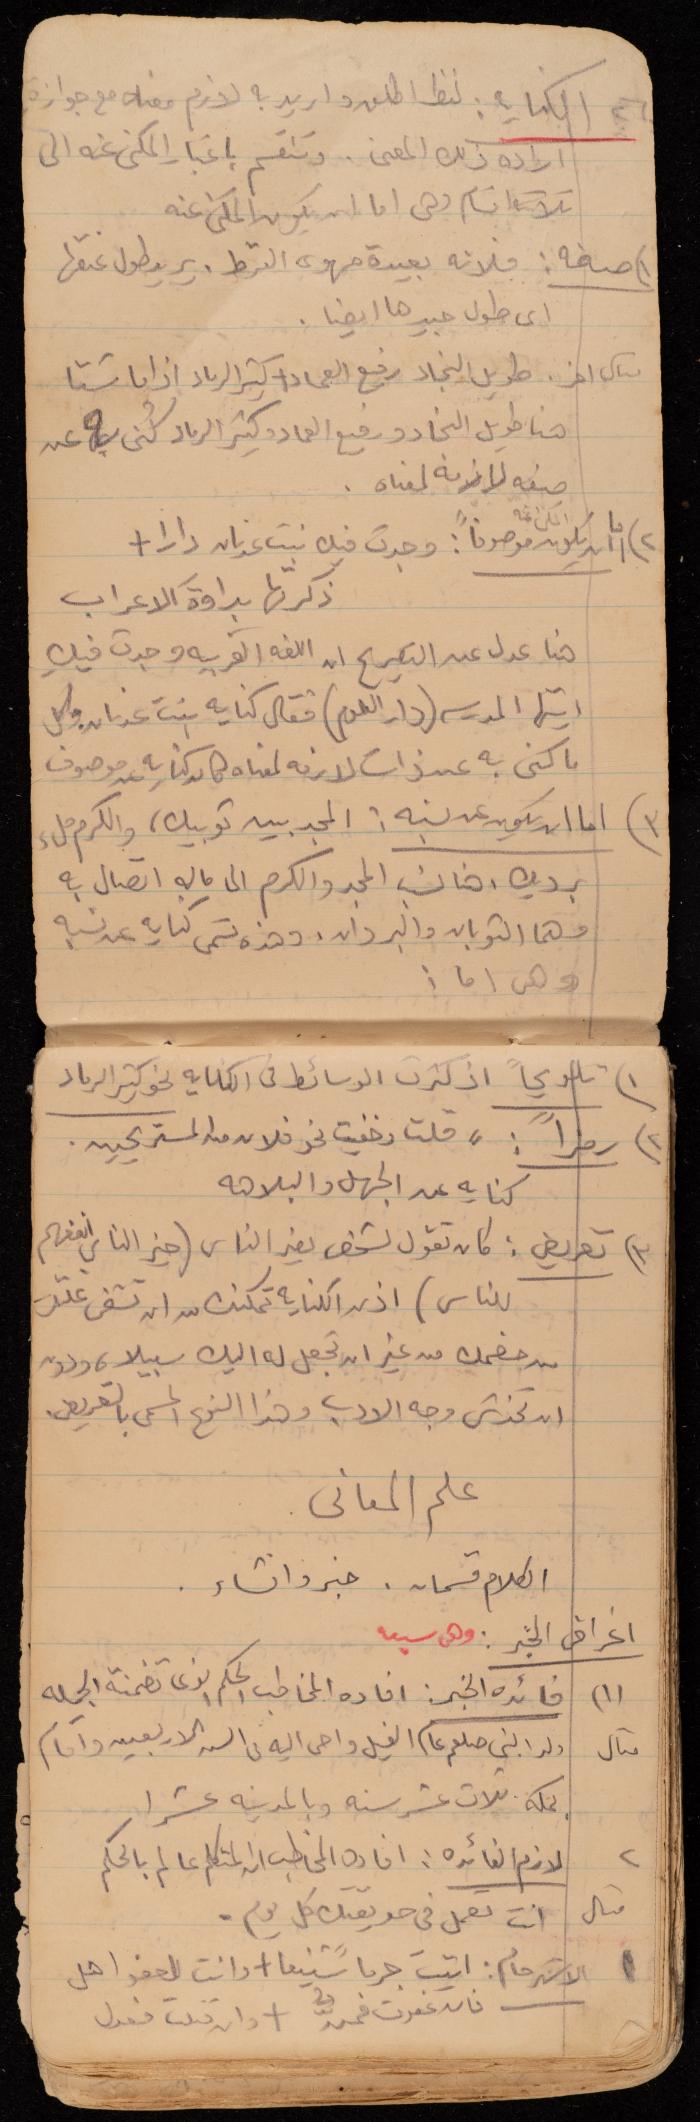 الكنايه : لفظ اطلق واريد به لازم معناه مع جوازة
اراده ذلك المعنى . وتنقسم باعتبار المكنى عنه الى
ثلاثة اقسام وهى اما ان يكون المكنى عنه
١) صفه : فلانه بعيدة مهوى القرط . يريد طول عنقها
اى طول جيدها ايضا .
مثال اخر . طويل النجاد رفيع العماد + كثير الرماد اذا ما شتا
هنا طويل النجاد ورفيع العماد وكثير الرماد كُنى به عن
صفه لازمة لمعناه .
٢) اما ان يكون المكنى عنه موصوفاً : وجدت فيك بنت عدنان دارا +
ذكرتها بداوة الاعراب
هنا عدل عن التصريح ان اللغه العربيه وجدت فيك
ايتها المدرسه (دار العلوم) فقال كنايه بنت عدنان وكل
ما كنى به عن ذات لازمه لمعناه كان كنايه عن موصوف
٣) اما ان يكون عن نسبه : المجد بين ثوبيك ، والكرم ملء
برديك ، هنا نسب المجد والكرم الى ماله اتصال به
وهما الثوبان والبردان ، وهذه تسمى كنايه عن نسبه
وهى اما :
١) تلويحاً اذ كثرت الوسائط فى الكنايه نحو كثير الرماد
٢) رمزاً : " قلت وخفيت نحو فلان من المستريحين .
كنايه عن الجهل والبلاهه
٣) تعريض : كان تقول لشخص يضر الناس (خير الناس انفعهم
للناس) اذن الكنايه تمكنك من ان تشفى غلتك
من خصمك من غير ان تجعل له اليك سبيلا ، ودون
ان تخدش وجه الادب وهذا النوع المسمى بالتعريض .
علم المعانى
الكلام قسمان . خبر وانشاء .
اغراض الخبر : وهى سبعه
(١) فائده الخبر : افاده المخاطب الحكم الذى تضمنته الجمله
مثال ولد النبى صلعم عام الفيل واوحى اليه فى السن الاربعين واقام
بمكه ثلاث عشر سنه وبالمدينه عشرا
٢ لازم الفائده : افاده المخاطب ان المتكلم عالم بالحكم
مثال انت تعمل فى حديقتك كل يوم .
الاسترحام : اتيت جرما شنيعا + وانت للعفو اهل
فان عفوت فمن + وان قتلت فعدل